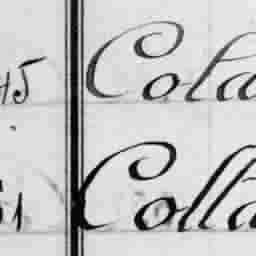 45 Cola
51 Colla